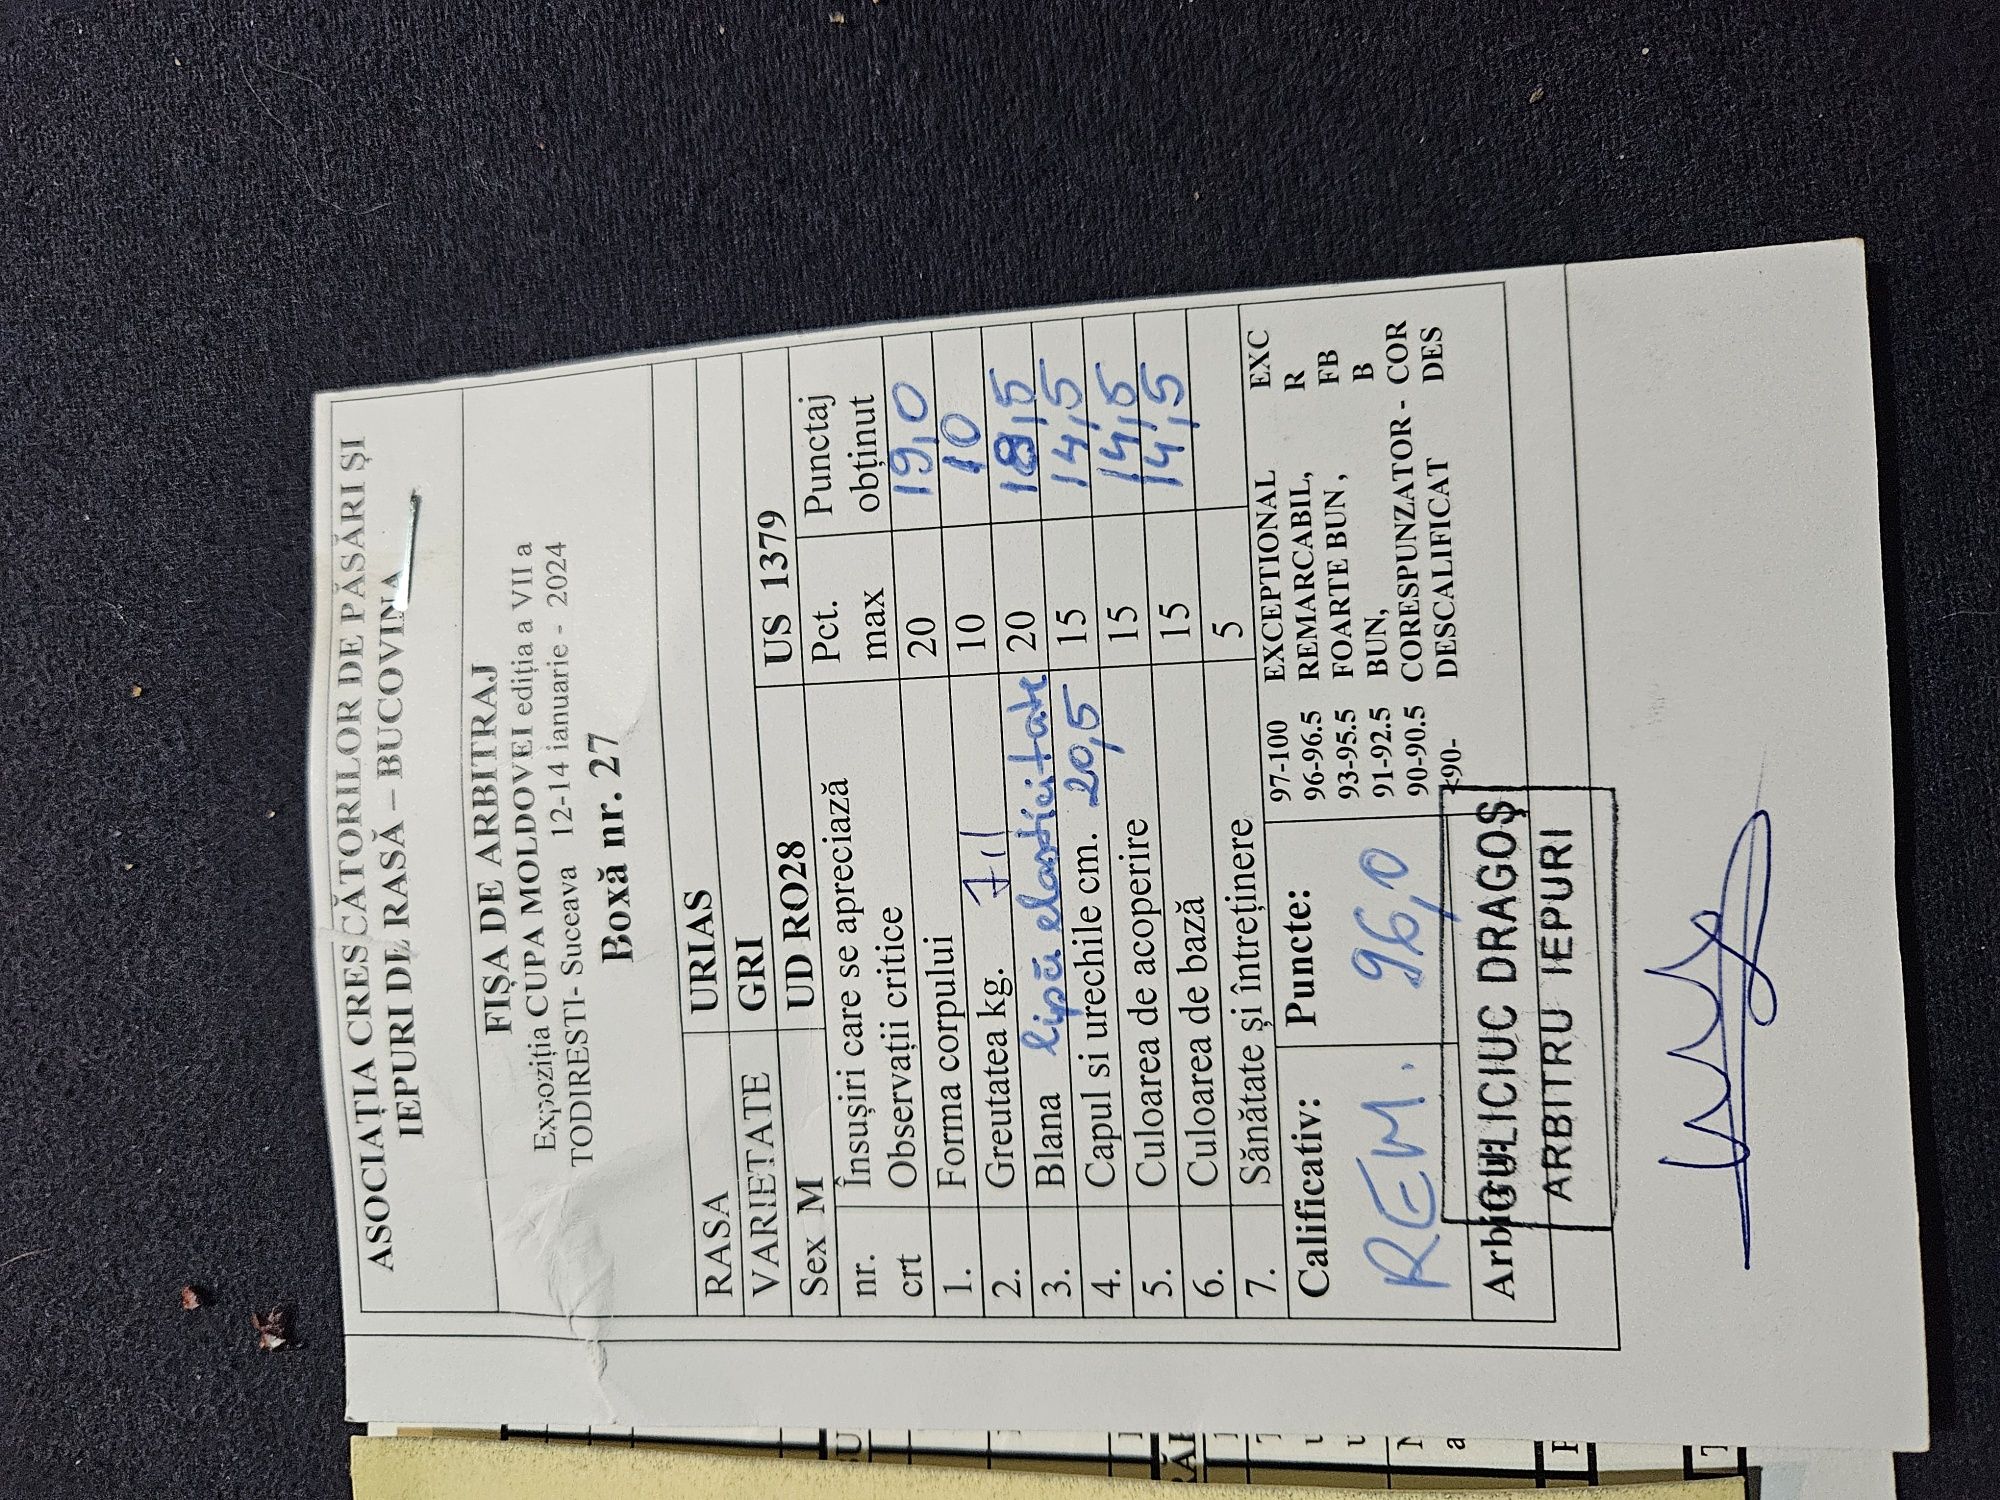 ASOCIAȚIA CRESCĂTORILOR DE PĂSĂRI ȘI
IEPURI DE RASĂ – BUCOVINA
FIȘA DE ARBITRAJ
Expoziția CUPA MOLDOVEI ediția a VII a
TODIRESTI- Suceava 12-14 ianuarie - 2024
Boxă nr. 27
RASA URIAS
VARIETATE GRI
Sex M UD RO28 US 1379
nr. crt Însușiri care se apreciază Observații critice Pct. max Punctaj obținut
1. Forma corpului 20 19,0
2. Greutatea kg. 10 10
3. Blana lipsă elasticitate 20 18,5
4. Capul si urechile cm. 20,5 15 14,5
5. Culoarea de acoperire 15 14,5
6. Culoarea de bază 15 14,5
7. Sănătate și întreținere 5
Calificativ: Puncte:
REM. 96,0
97-100 EXCEPTIONAL EXC
96-96.5 REMARCABIL, R
93-95.5 FOARTE BUN , FB
91-92.5 BUN, B
90-90.5 CORESPUNZATOR - COR
<90- DESCALIFICAT DES
GULICIUC DRAGOȘ
ARBITRU IEPURI